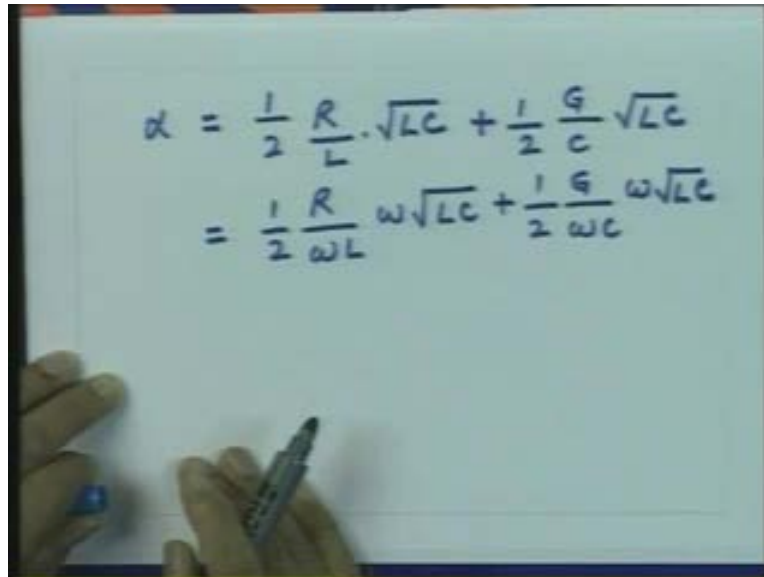 α = 1/2 R/L . √LC + 1/2 G/C √LC
= 1/2 R/ωL ω√LC + 1/2 G/ωC ω√LC